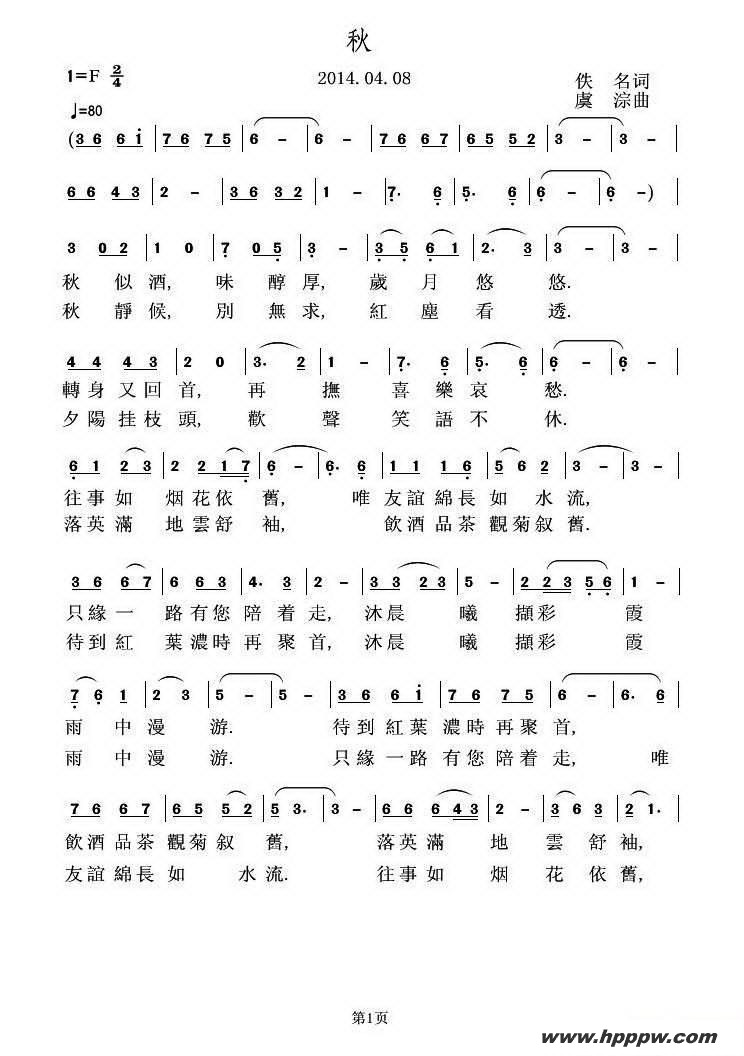 秋
1=F 2/4
2014.04.08
佚 名词
♩=80
虞 淙曲
(3 6 6 i | 7 6 7 5 | 6 - | 6 - | 7 6 6 7 | 6 5 5 2 | 3 - | 3 - |
6 6 4 3 | 2 - | 3 6 3 2 | 1 - | 7. 6 | 5. 6 | 6 - | 6 -)
3 0 2 | 1 0 | 7 0 5 | 3 - | 3 5 6 1 | 2. 3 | 3 - | 3 - |
秋 似酒, 味 醇厚, 歲 月 悠 悠.
秋 靜候, 別 無求, 紅 塵 看 透.
4 4 4 3 | 2 0 | 3. 2 | 1 - | 7. 6 | 5. 6 | 6 - | 6 - |
轉身又回首, 再 撫 喜 樂哀 愁.
夕陽挂枝頭, 歡 聲 笑 語不 休.
6 1 2 3 | 2 2 1 7 | 6 - | 6. 6 | 1 1 1 6 | 5 6 2 | 3 - | 3 - |
往事如 烟花依 舊, 唯 友誼綿長 如 水流,
落英滿 地雲舒 袖, 飲酒品茶觀菊叙舊.
3 6 6 7 | 6 6 3 | 4. 3 | 2 - | 3 3 2 3 | 5 - | 2 2 3 5 6 | 1 - |
只緣一 路有您陪着走, 沐晨 曦 擷彩 霞
待到紅 葉濃時再聚首, 沐晨 曦 擷彩 霞
7 6 1 | 2 3 | 5 - | 5 - | 3 6 6 i | 7 6 7 5 | 6 - | 6. 6 |
雨 中漫 游. 待到紅葉濃時再聚首,
雨 中漫 游. 只緣一路有您陪着走, 唯
7 6 6 7 | 6 5 5 2 | 5 3. | 3 - | 6 6 6 4 3 | 2 - | 3 6 3 | 2 1. |
飲酒品茶觀菊叙 舊, 落英滿 地 雲 舒 袖,
友誼綿長如 水流. 往事如 烟 花 依舊,
第1页
www.hpppw.com